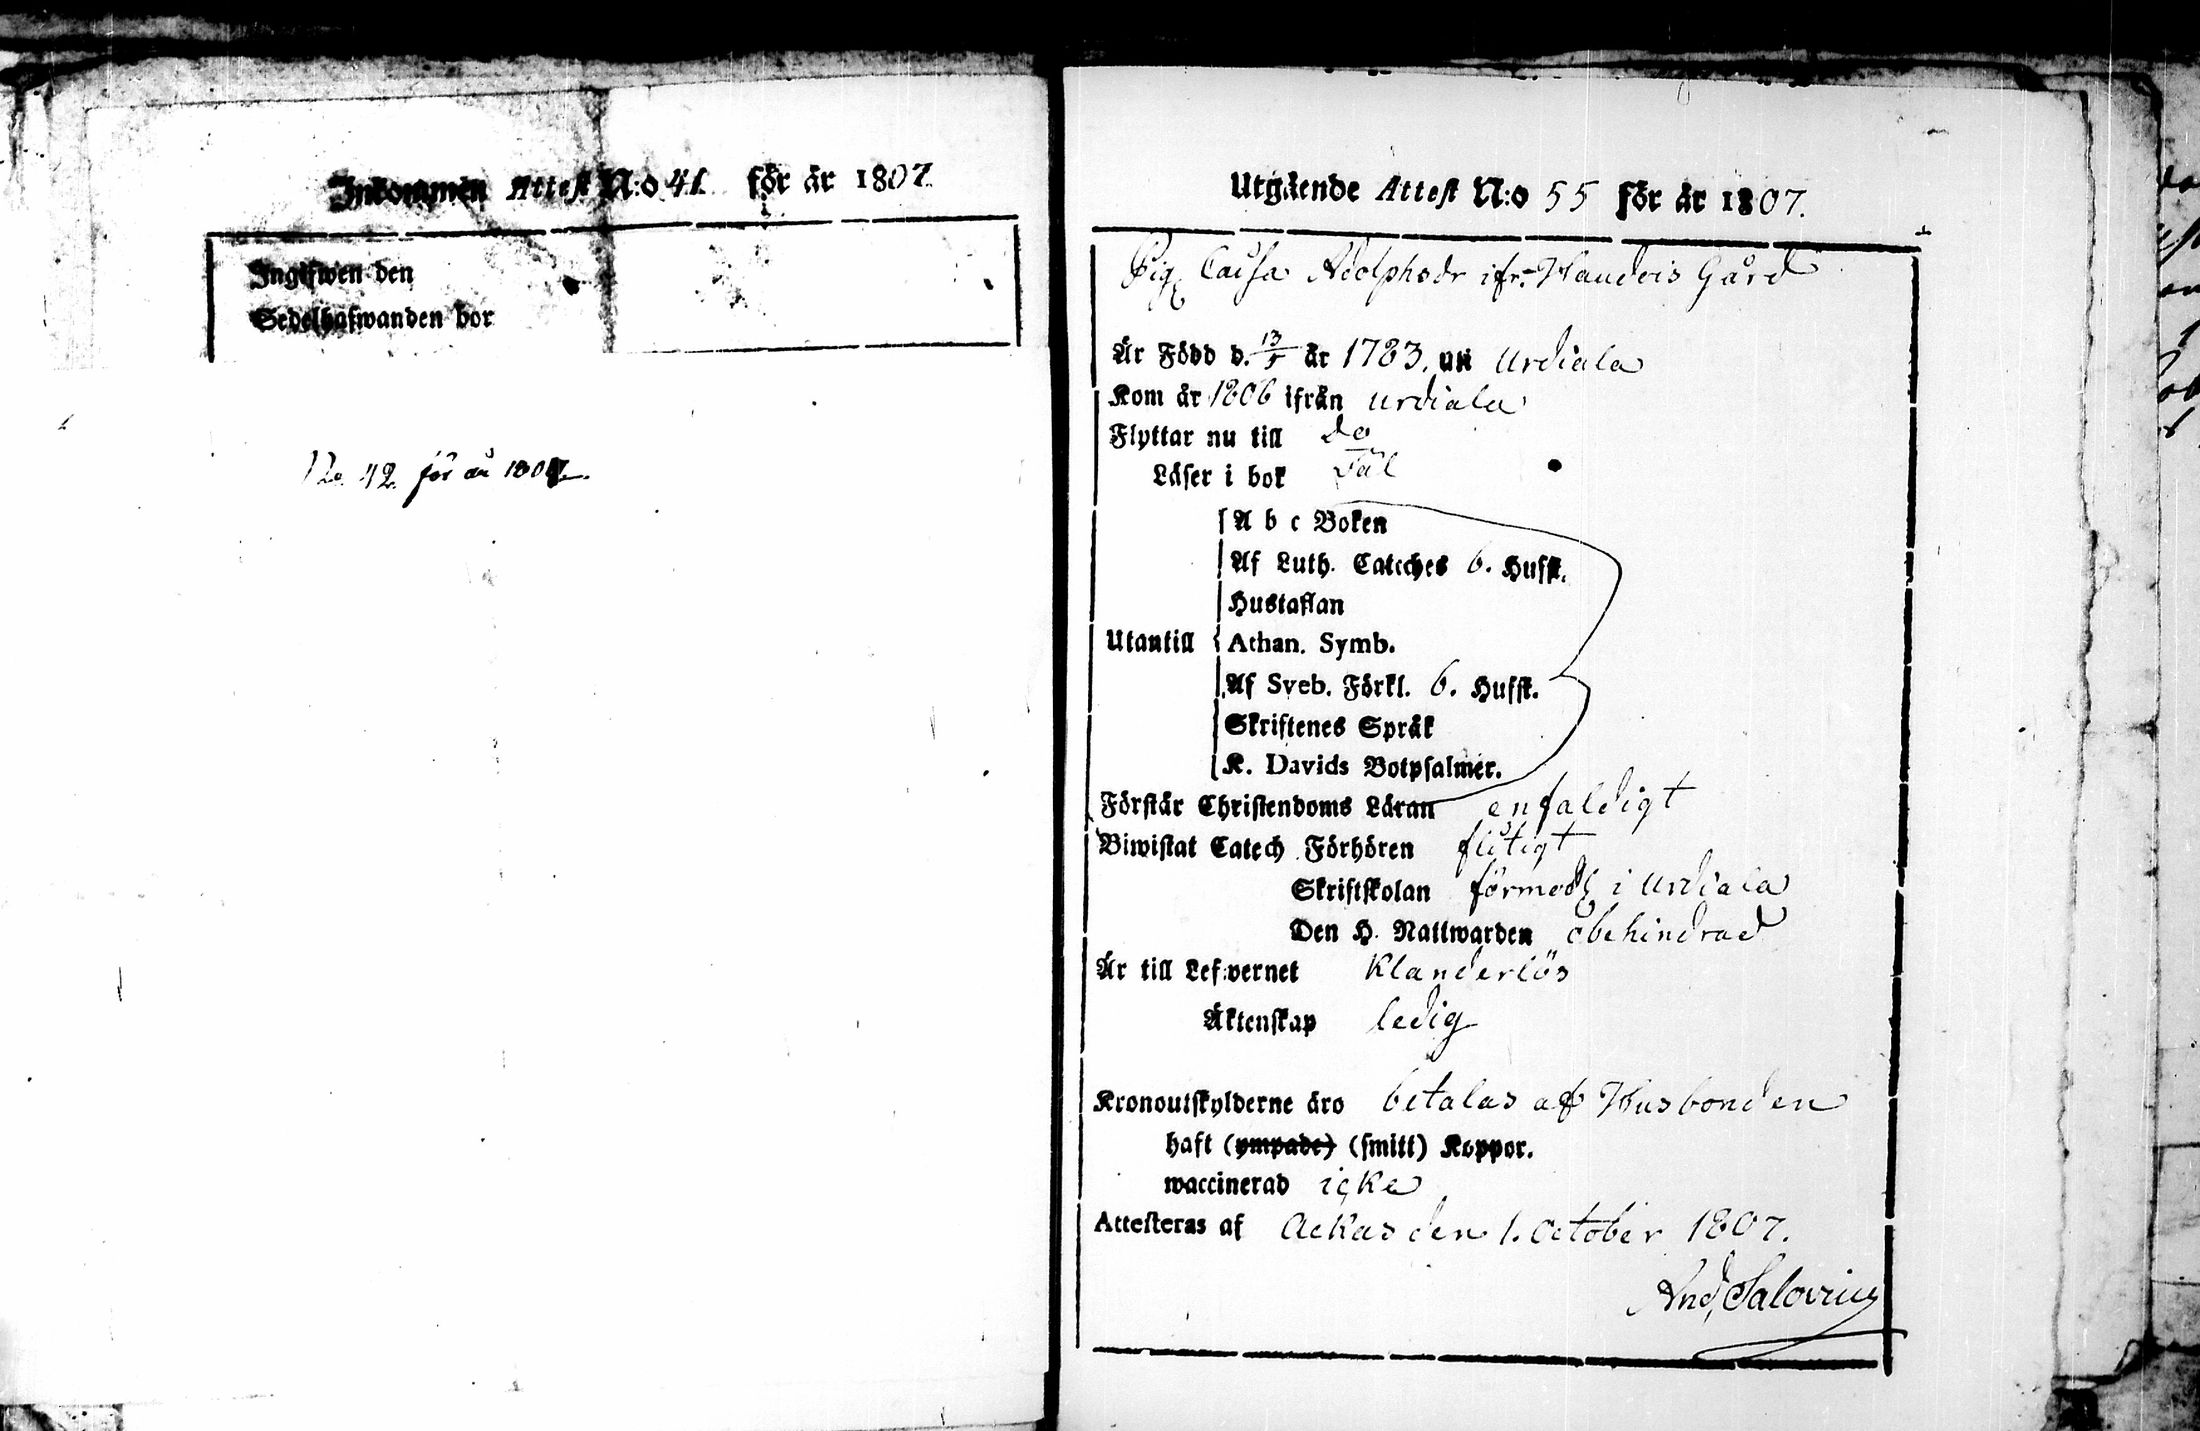 Inkommen Attest N:o 41 för år 1807.
Ingifwen den
Sedelhafwanden bor
No 42 för år 1807.
Utgående Attest N:o 55 för år 1807.
Pig. Caisa Adolphsdr ifr. Gård
Är Född d. 13/5 år 1783, uti Urdiala
Kom år 1806 ifrån Urdiala
Flyttar nu till do
Läser i bok
A b c Boken
Af Luth. Cateches 6. Hufst.
Hustaflan
Utantill Athan. Symb.
Af Sveb. Förkl. 6. Hufst.
Skriftenes Språk
K. Davids Botpsalmer.
Förstår Christendoms Läran enfaldigt
Biwistat Catech. Förhören flitigt
Skriftskolan förmodl i Urdiala
Den H. Nattwarden obehindrad
Är till Lefwernet Klanderlös
Äktenskap ledig
Kronoutskylderne äro betalas af Husbonden
haft (ympade) (smitt) Koppor.
waccinerad icke
Attesteras af Ackas den 1. October 1807.
And. Salovius